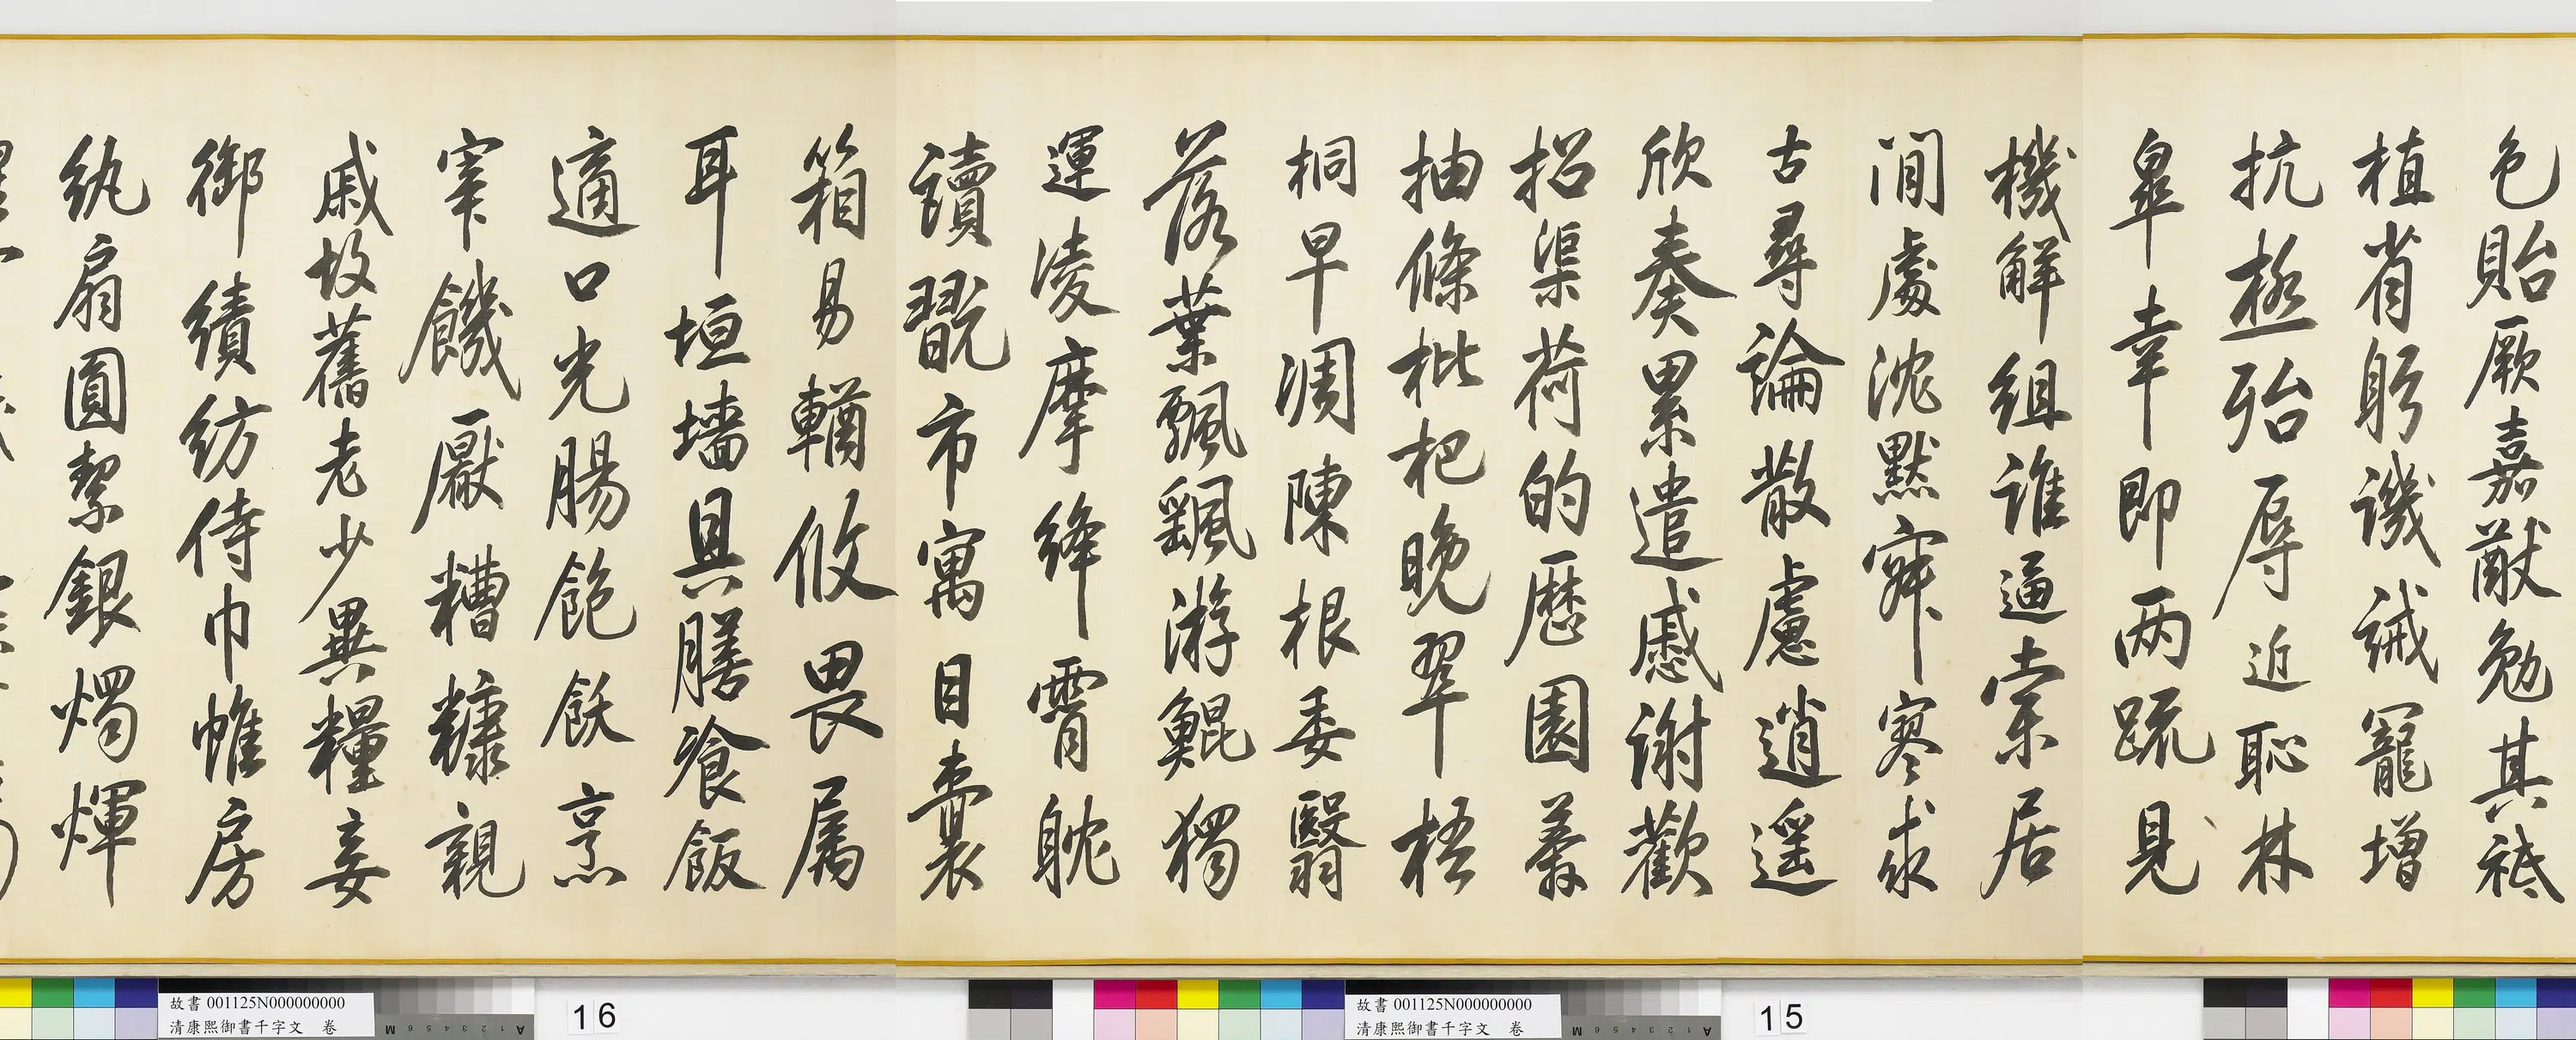 色貽厥嘉猷勉其祗
植省躬譏誡寵增
抗極殆辱近恥林
皋幸即两疏見
機解組谁逼索居
閒處沈默寂寥求
古尋論散慮逍遥
欣奏累遣慼谢歡
招渠荷的歷園莽
抽條枇杷晚翠梧
桐早凋陳根委翳
落葉飄颻游鯤獨
運凌摩絳霄躭
讀翫市寓目囊
箱易輶攸畏属
耳垣墻具膳飡飯
適口光腸飽飫烹
宰饑厭糟糠親
戚故舊老少異糧妾
御績紡侍巾帷房
紈扇圓絜銀燭煇
故書 001125N000000000
清康熙御書千字文 卷
16
故書 001125N000000000
清康熙御書千字文 卷
15